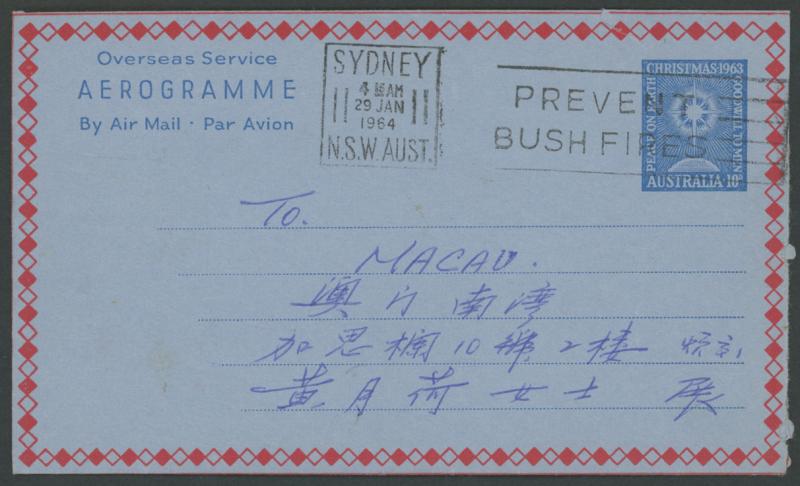 Overseas Service
AEROGRAMME
By Air Mail · Par Avion
SYDNEY
4 AM
29 JAN
1964
N.S.W. AUST.
PREVENT
BUSH FIRES
CHRISTMAS·1963
PEACE ON EARTH
GOODWILL TO MEN
AUSTRALIA·10D
To.
MACAU.
澳门南湾
加思欄10號2楼
黄月荷女士 展